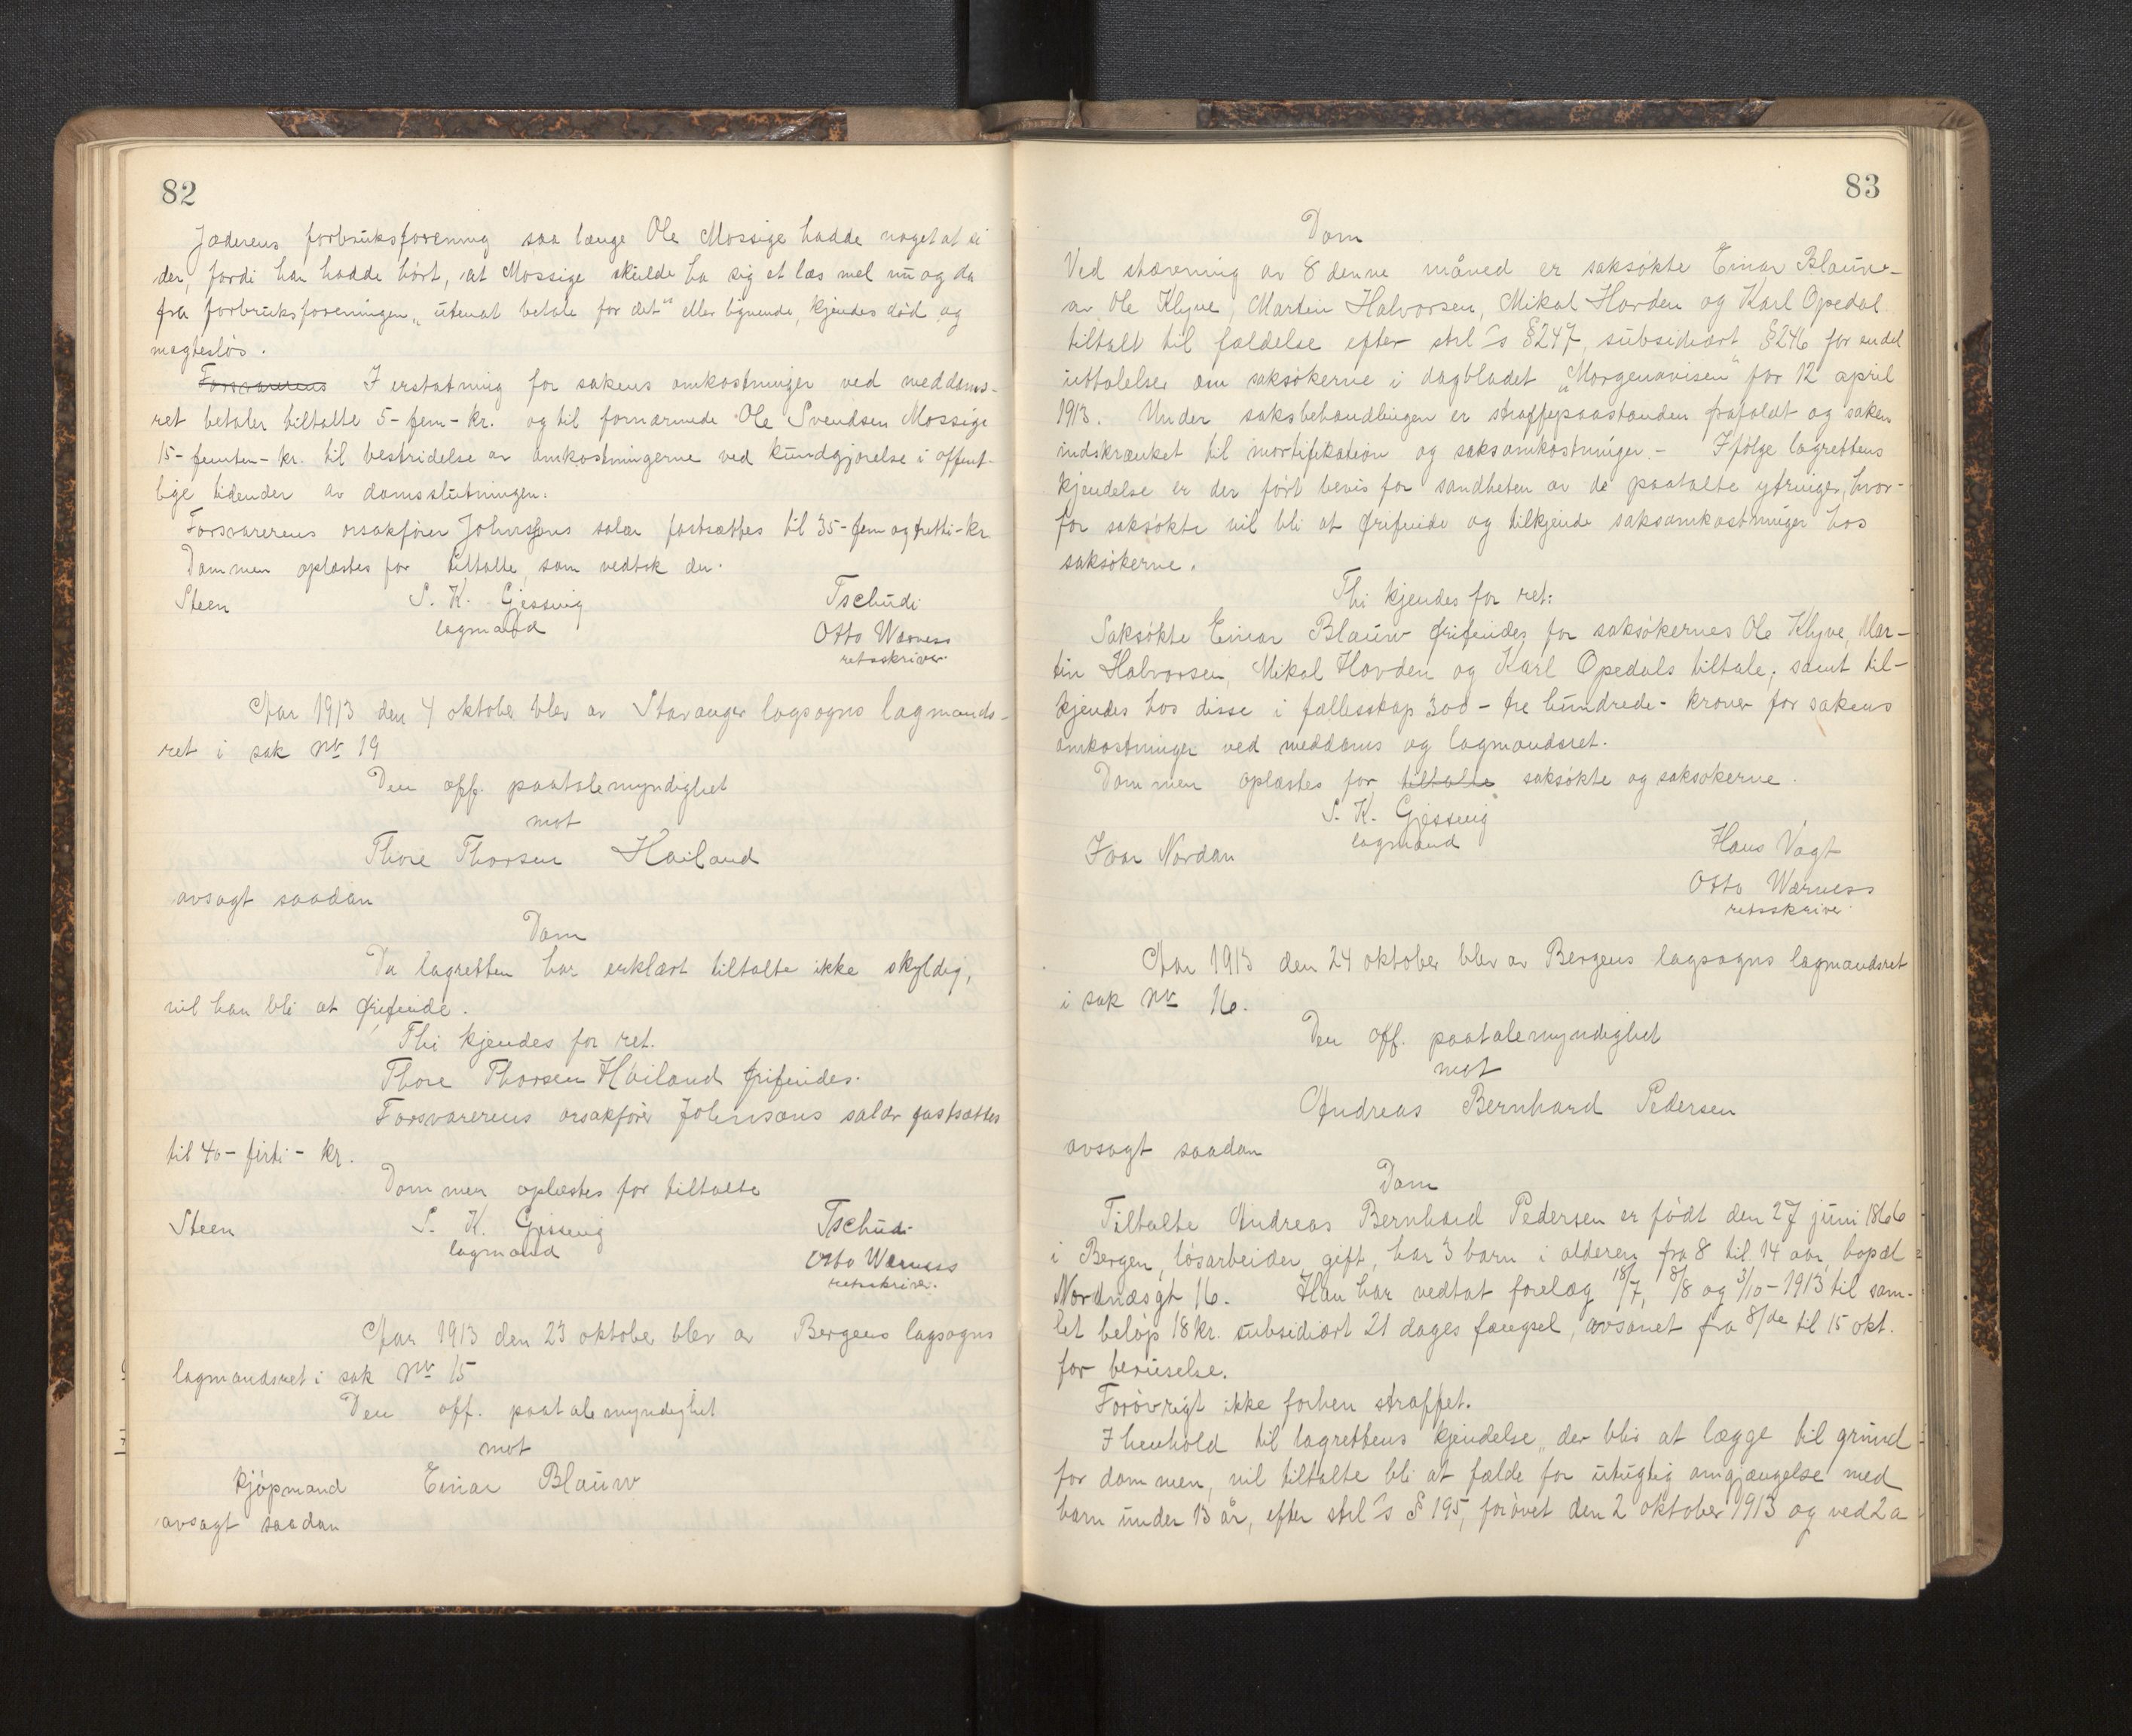 82
Jæderens forbruksforening saa længe Ole Mossige hadde noget at si
der, fordi han hadde hørt, at Mossige skulde ha sig et læs mel nu og da
fra forbruksforeningen "utenat betale for det" eller lignende, kjendes død og
magtesløs.
Forsvarerens I erstatning for sakens omkostninger ved meddoms-
ret betaler tiltalte 5-fem-kr. og til fornærmede Ole Svendsen Mossige
15-femten-kr. til bestridelse av omkostningerne ved kundgjørelse i offent-
lige tidender av domsslutningen.
Forsvarerens orsakfører Johnsons salær fastsættes til 35-fem og tretti-kr
Dommen oplæstes for tiltalte, som vedtok den.
Steen S. K. Gjessing Tschudi
lagmand Otto Warness
retsskriver.
Aar 1913 den 4 oktober blev av Stavanger lagsogns lagmands-
ret i sak Nr 19
Den off. paatalemyndighet
mot
Thore Thorsen Høiland
avsagt saadan
Dom
Da lagretten har erklært tiltalte ikke skyldig,
vil han bli at frifinde.
Thi kjendes for ret.
Thore Thorsen Høiland frifindes.
Forsvarerens orsakfører Johnsons salær fastsættes
til 40-firti-kr.
Dommen oplæstes for tiltalte
Steen S. K. Gjessing Tschudi
lagmand Otto Warness
retsskriver.
Aar 1913 den 23 oktober blev av Bergens lagsogns
lagmandsret i sak Nr 15
Den off. paatalemyndighet
mot
kjøpmand Einar Blauw
avsagt saadan
83
Dom
Ved stævning av 8 denne måned er saksøkte Einar Blauw
av Ole Klyve, Martin Halvorsen, Mikal Hovden og Karl Opedal
tiltalt til fældelse efter strl's §247, subsidiært §246 for endel
uttalelser om saksøkerne i dagbladet "Morgenavisen" for 12 april
1913. Under saksbehandlingen er straffepaastanden frafaldt og saken
indskrænket til mortifikation og saksomkostninger. - Ifølge lagrettens
kjendelse er der ført bevis for sandheten av de paatalte ytringer, hvor-
for saksøkte vil bli at frifinde og tilkjende saksomkostninger hos
saksøkerne.
Thi kjendes for ret:
Saksøkte Einar Blauw frifindes for saksøkernes Ole Klyve, Mar-
tin Halvorsen, Mikal Hovden og Karl Opedals tiltale, samt til-
kjendes hos disse i fællesskap 300 - tre hundrede - kroner for sakens
omkostninger ved meddoms og lagmandsret.
Dommen oplæstes for tiltalte saksøkte og saksøkerne.
S. K. Gjessing
Ivar Nordan lagmand Hans Vogt
Otto Warness
retsskriver
Aar 1913 den 24 oktober blev av Bergens lagsogns lagmandsret
i sak Nr 16.
Den off. paatalemyndighet
mot
Andreas Bernhard Pedersen
avsagt saadan
Dom
Tiltalte Andreas Bernhard Pedersen er født den 27 juni 1866
i Bergen, løsarbeider, gift, har 3 barn i alderen fra 8 til 14 aar, bopæl
Nordnæsgt 16. Han har vedtat forelæg 18/7, 8/8 og 3/10-1913 til sam-
let beløp 18 kr. subsidiært 21 dages fængsel, avsonet fra 8/de til 15 okt.
for beruselse.
Forøvrigt ikke forhen straffet.
I henhold til lagrettens kjendelse, der blir at lægge til grund
for dommen, vil tiltalte bli at fælde for utugtig omgjængelse med
barn under 13 år, efter strl's § 195, forøvet den 2 oktober 1913 og ved 2 a